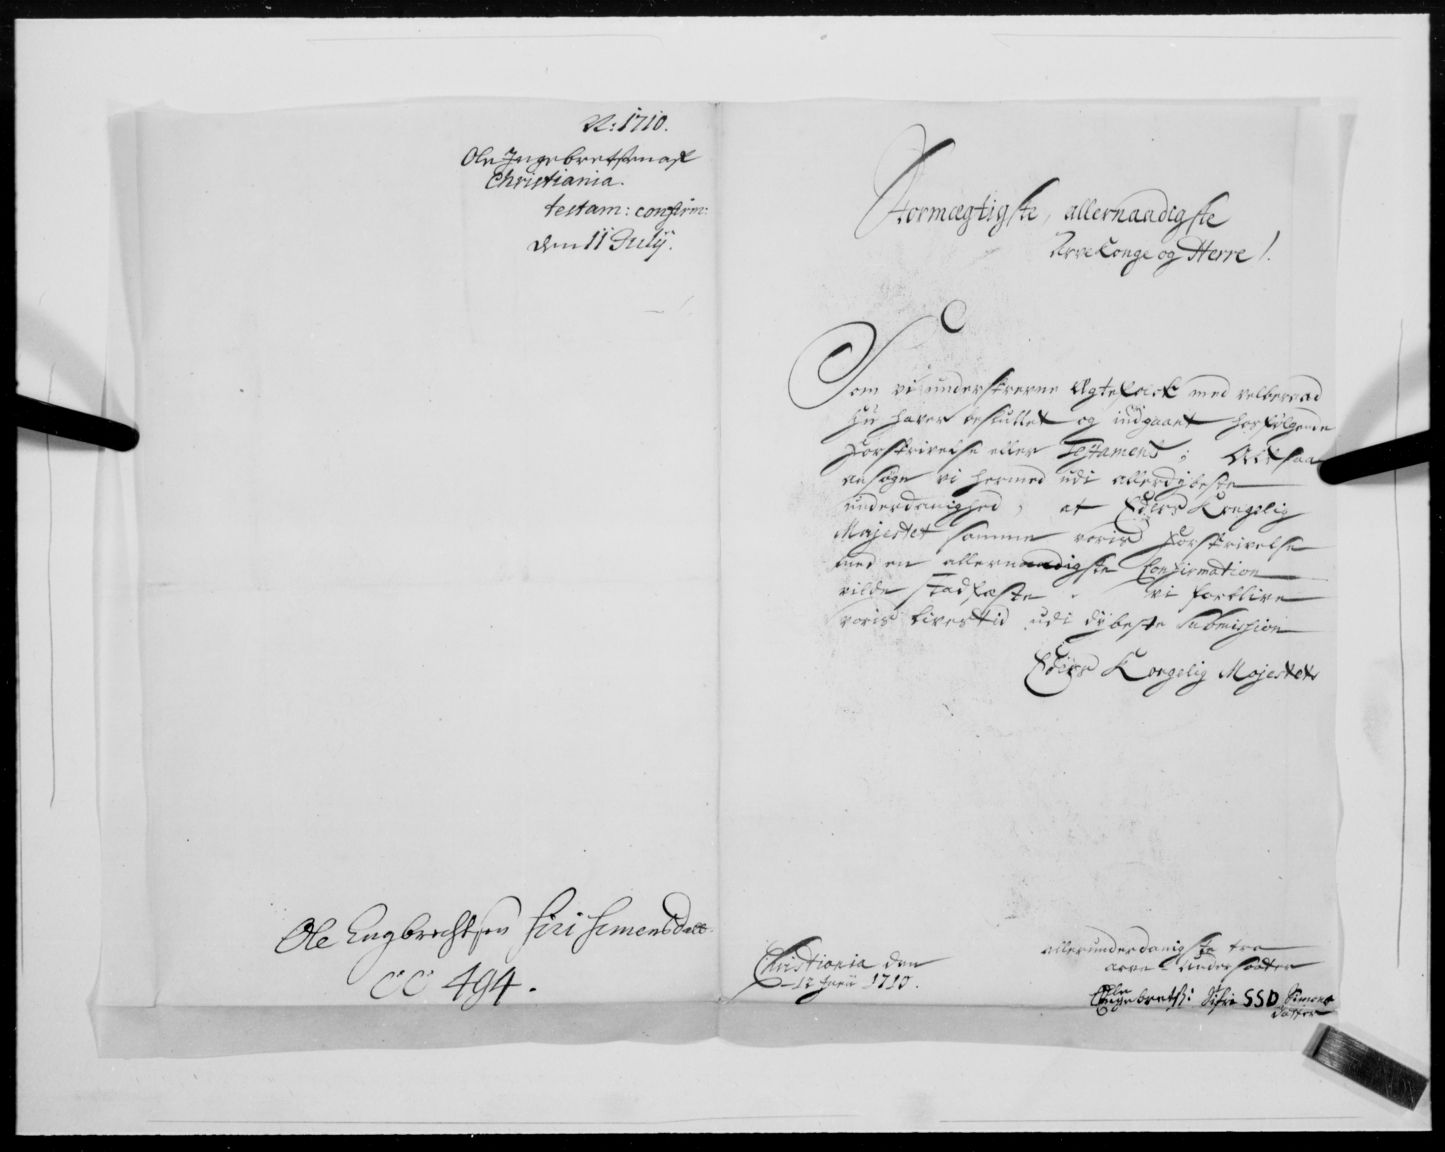 N: 1710.
Ole Ingebretsen af
Christiania.
testam: confirm:
den 11 July.
Ole Engbrechtsen Siri Simensdatt
CC 494.
Stormægtigste, allernaadigste
ArveKonge og Herre!
Som vi underskrevne Ægtefolck med velberaad
Hu haver besluttet og indgaaet hosfølgende
Forskrivelse eller Testament; Altsaa
ansøge vi hermed udi allerdybeste
underdanighed, at Eders Kongelig
Majestet samme voris Forskrivelse
med en allernaadigste Confirmation
vilde stadfæste. vi forblive
voris livestid udi dybeste Submission
Eders Kongelig Majestets
Christiania den
1710.
allerunderdanigste tro
arve Undersaatter
Ole
Engebrets: Siri SSD Simens
Datter